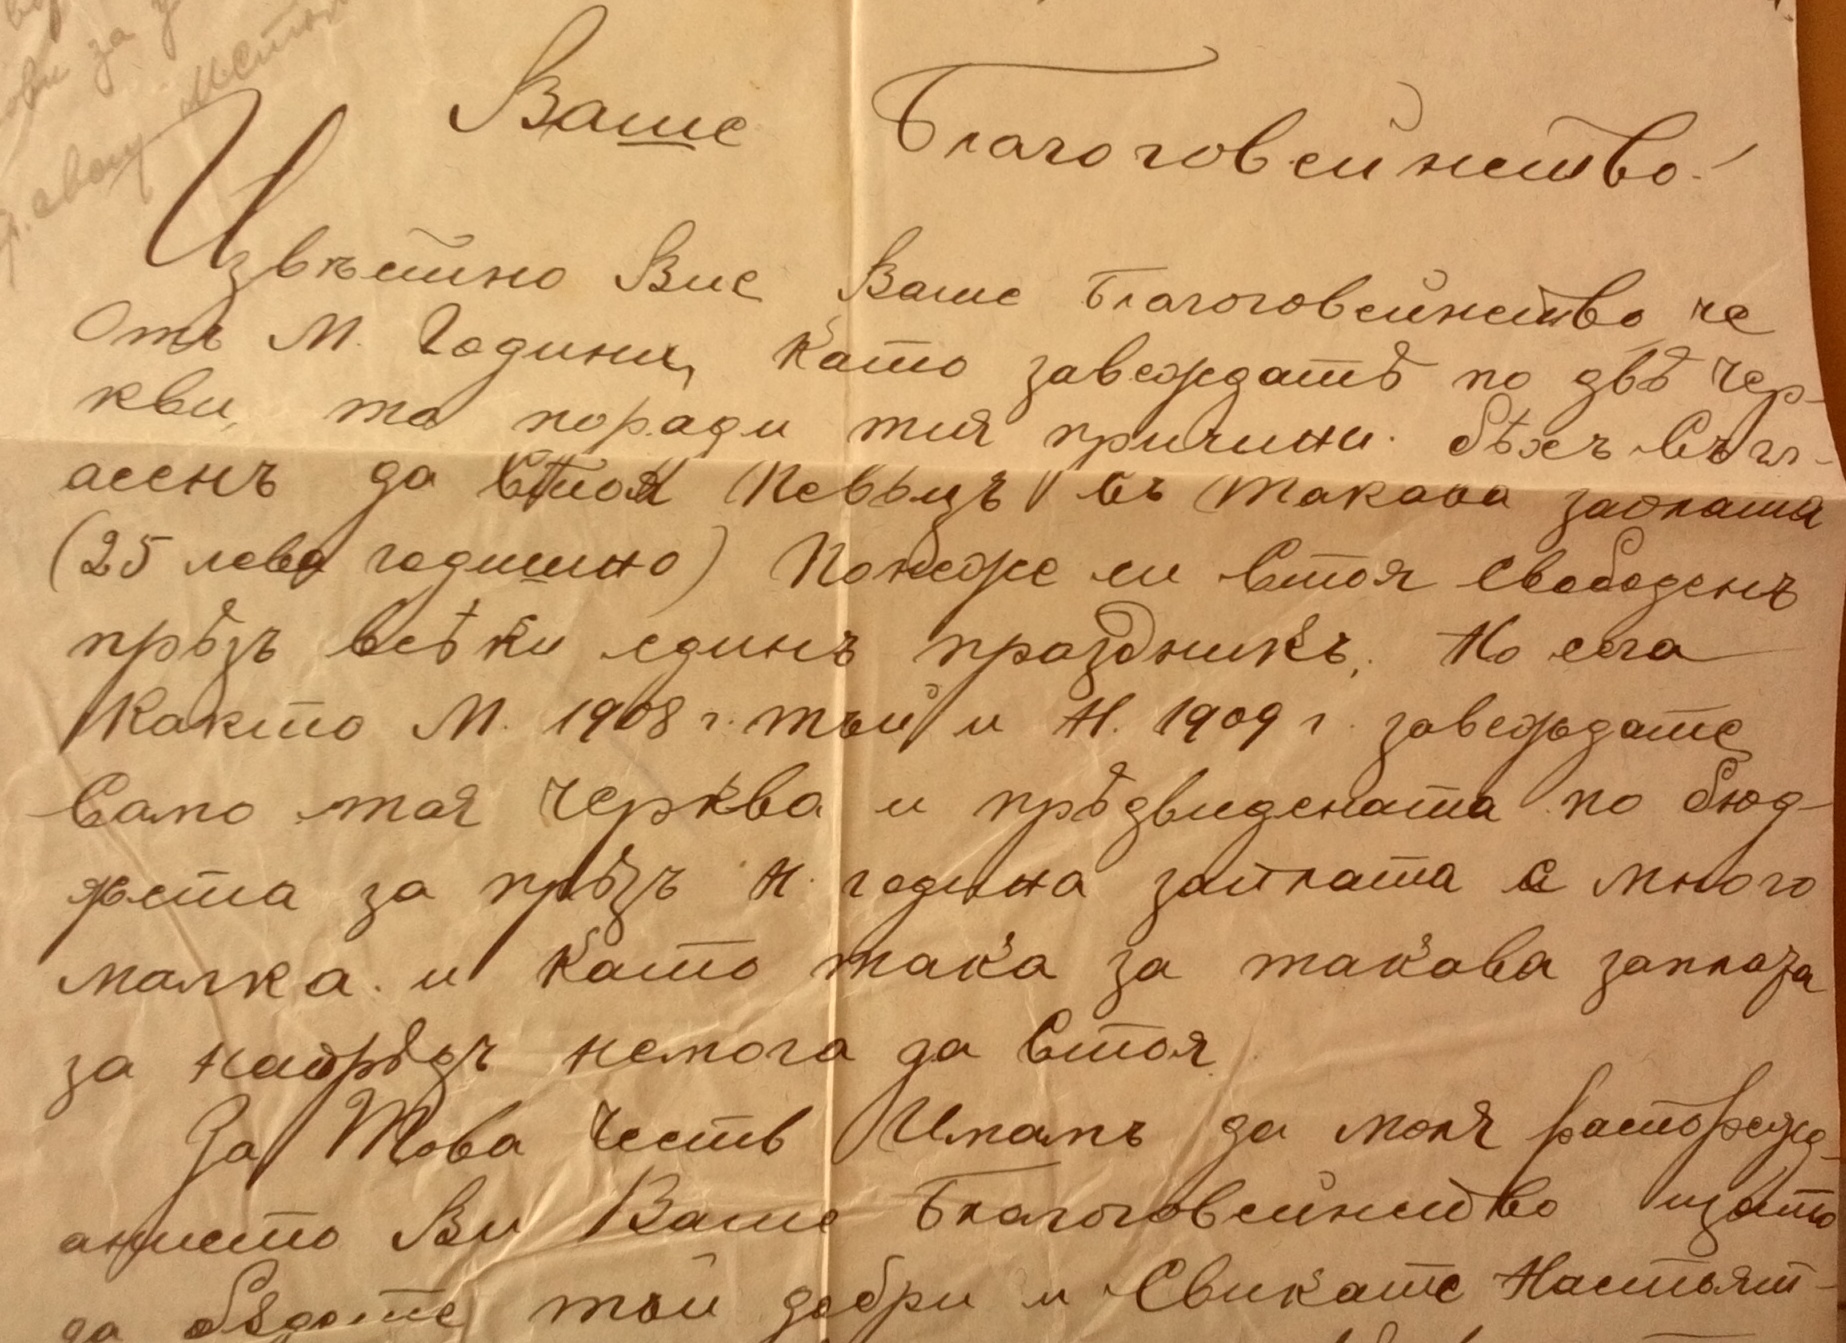 Ваше Благоговейнство!
Извѣстно Вие Ваше Благоговейнство, че
Отъ М. Години, като завеждатѣ по двѣ Чер-
кви, то поради тия причини бѣхъ Съгл-
асенъ да Стоя Певецъ въ такава заплата
(25 лева годишно) Понеже си Стоя Свободенъ
прѣзъ всѣки единъ праздникъ. Но сега
Както М. 1908 г. тъй и Н. 1909 г. завеждате
Само тая Черква и прѣдвидената по бюд-
жета за прѣзъ Н. година заплата е много
малка. и като така за такава заплата
за напрѣдъ немога да Стоя
За Това Честь Имамъ да моля распорежд-
анието Ви Ваше Благоговейнство щото
да бѫдете тъй добри и Свикате Настоят-